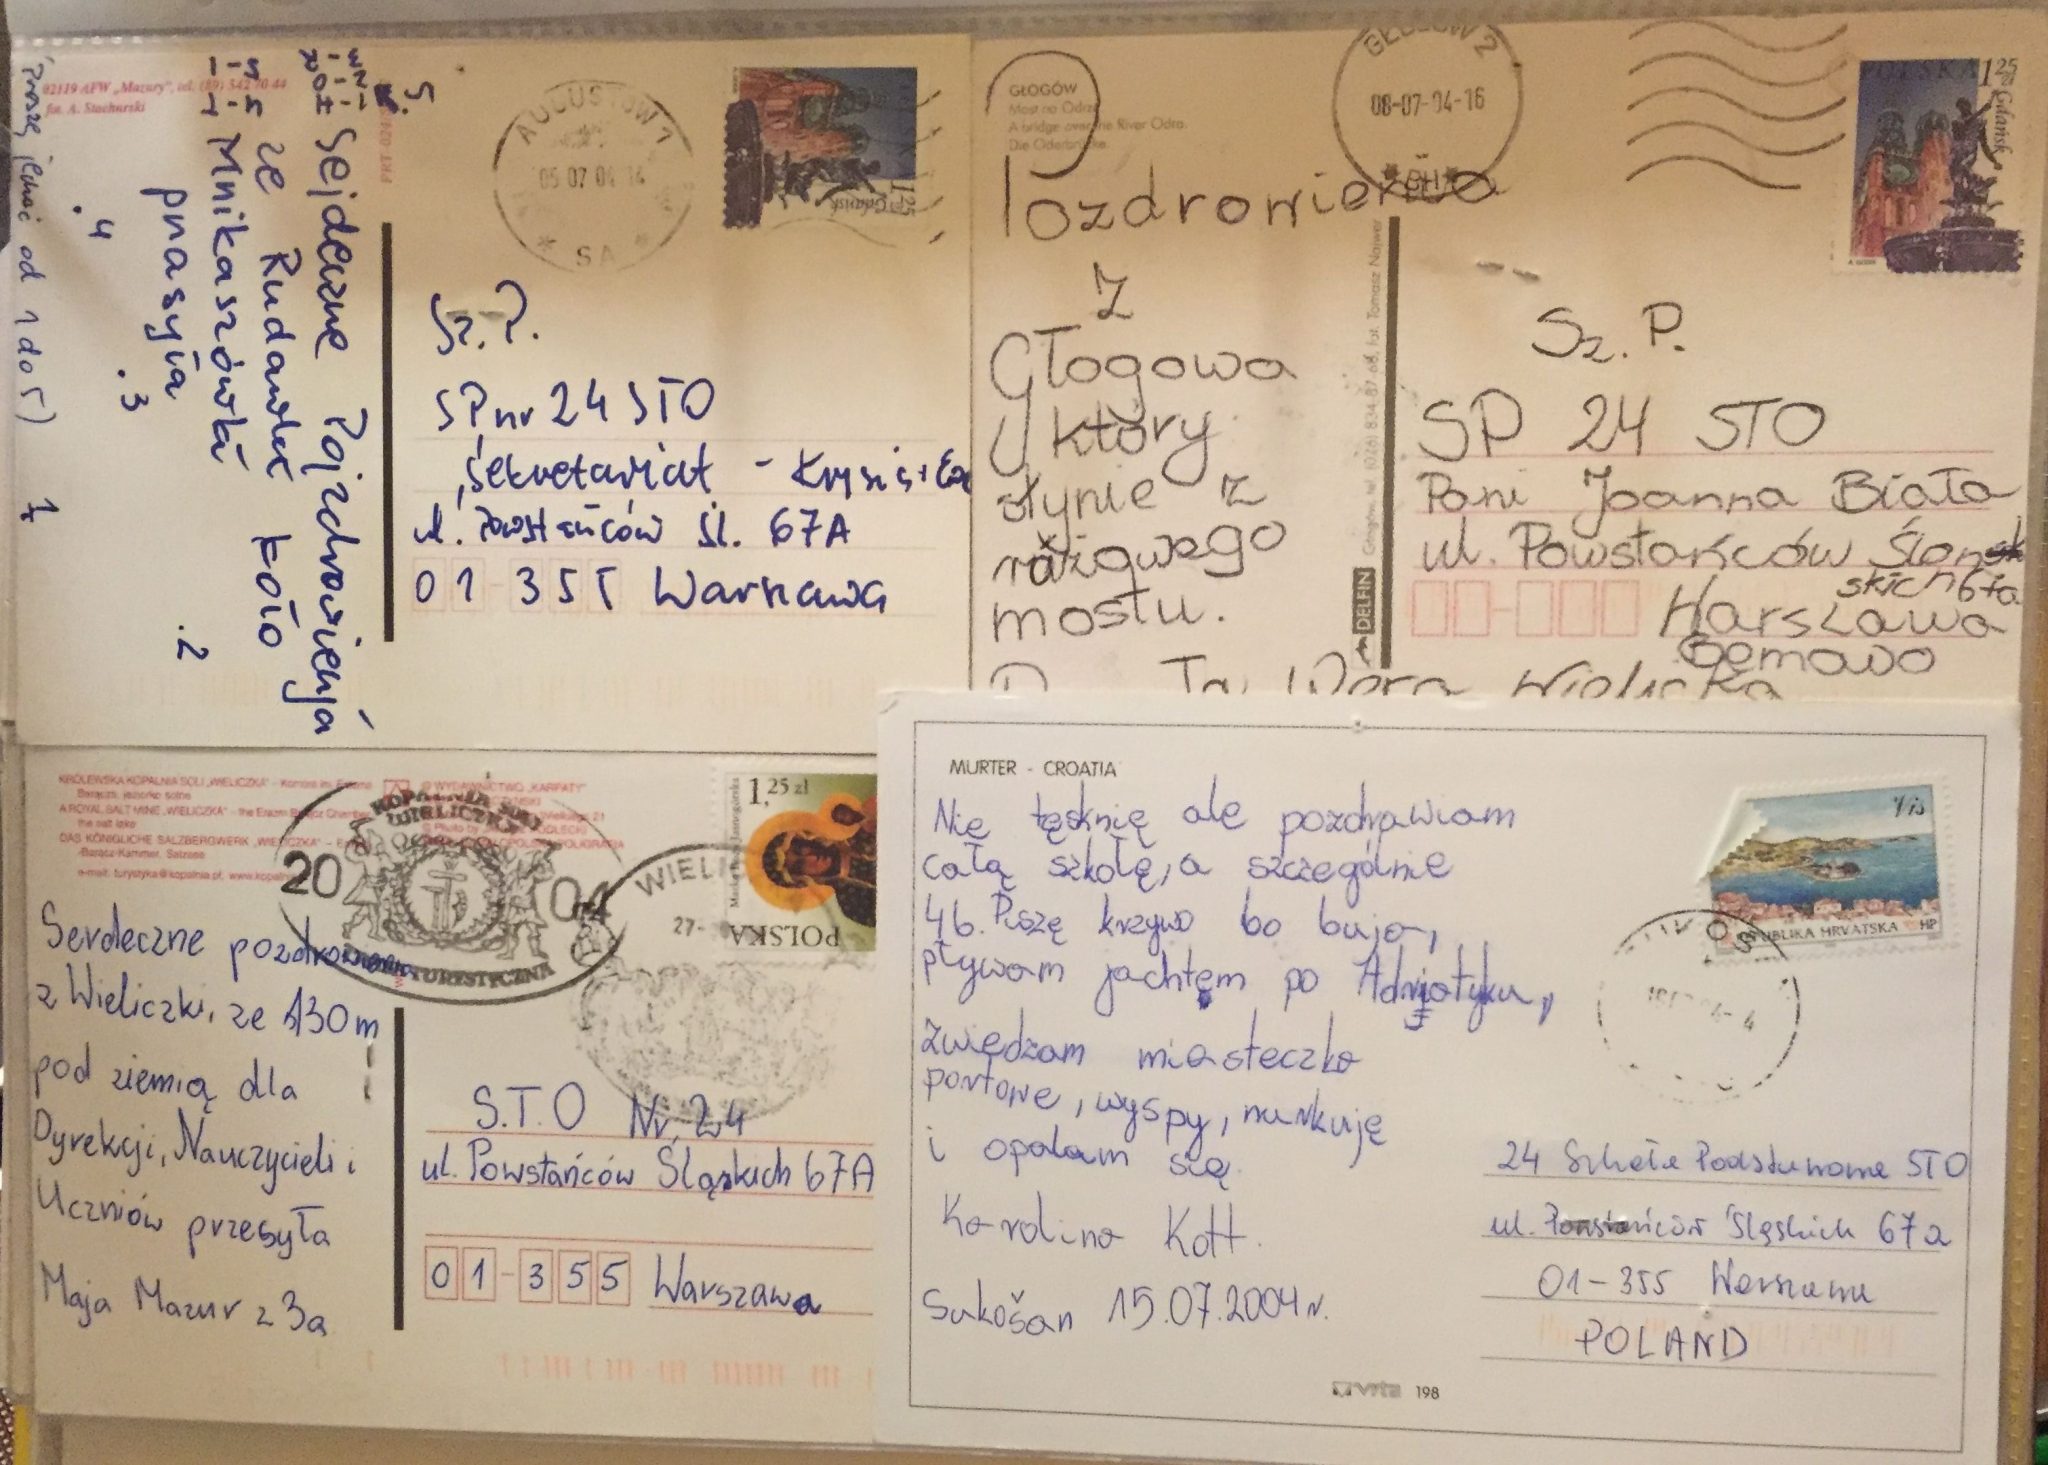 02119 AFW „Mazury", tel. (89) 542 70 44
fot. A. Stachurski
Proszę jechać od 1 do 5)
1
.2
.3
.4
5.
Sejdeczne Pojzdrowienja
ze Rudawki koło
Mnikaszówki
pnasyła
AUGUSTÓW 1
05 07 04 14
SA
1,25 zł Gdańsk
Sz. P.
SP nr 24 STO
Sekretariat - Krysia i Ea
ul. Powstańców Śl. 67A
01-355 Warszawa
GŁOGÓW
Most na Odrze
A bridge over the River Odra.
Die Oderbrücke.
GŁOGÓW 2
08-07-04-16
POLSKA 1,25 zł Gdańsk
Pozdrowienia
z
Głogowa
który
słynie z
różowego
mostu.
Wera Wielicka
DELFIN Głogów, tel. (076) 834-87-68, fot. Tomasz Najwer
Sz. P.
SP 24 STO
Pani Joanna Biała
ul. Powstańców Ślon
skich 67a
Warszawa
Bemowo
KRÓLEWSKA KOPALNIA SOLI „WIELICZKA" – Komora im. Erazma
Barącza, jeziorko solne
A ROYAL SALT MINE „WIELICZKA" – the Erazm Barącz Chamber,
the salt lake
DAS KÖNIGLICHE SALZBERGWERK „WIELICZKA" –
Barącz-Kammer, Salzsee
e-mail: turystyka@kopalnia.pl, www.kopalnia
© WYDAWNICTWO „KARPATY"
KOPALNIA SOLI
WIELICZKA
2004
TRASA TURYSTYCZNA
WIELI
27-
1,25 zł
POLSKA
Serdeczne pozdrowienia
z Wieliczki, ze 130m
pod ziemią dla
Dyrekcji, Nauczycieli i
Uczniów przesyła
Maja Mazur z 3a
S.T.O Nr 24
ul. Powstańców Śląskich 67A
01-355 Warszawa
MURTER - CROATIA
Nie tęsknię ale pozdrawiam
całą szkołę, a szczególnie
4b. Piszę krzywo bo buja,
pływam jachtem po Adriatyku,
zwiedzam miasteczka
portowe, wyspy, nurkuję
i opalam się.
Karolina Kott.
Sukošan 15.07.2004r.
REPUBLIKA HRVATSKA HP
24 Szkoła Podstawowa STO
ul. Powstańców Śląskich 67a
01-355 Warszawa
POLAND
198